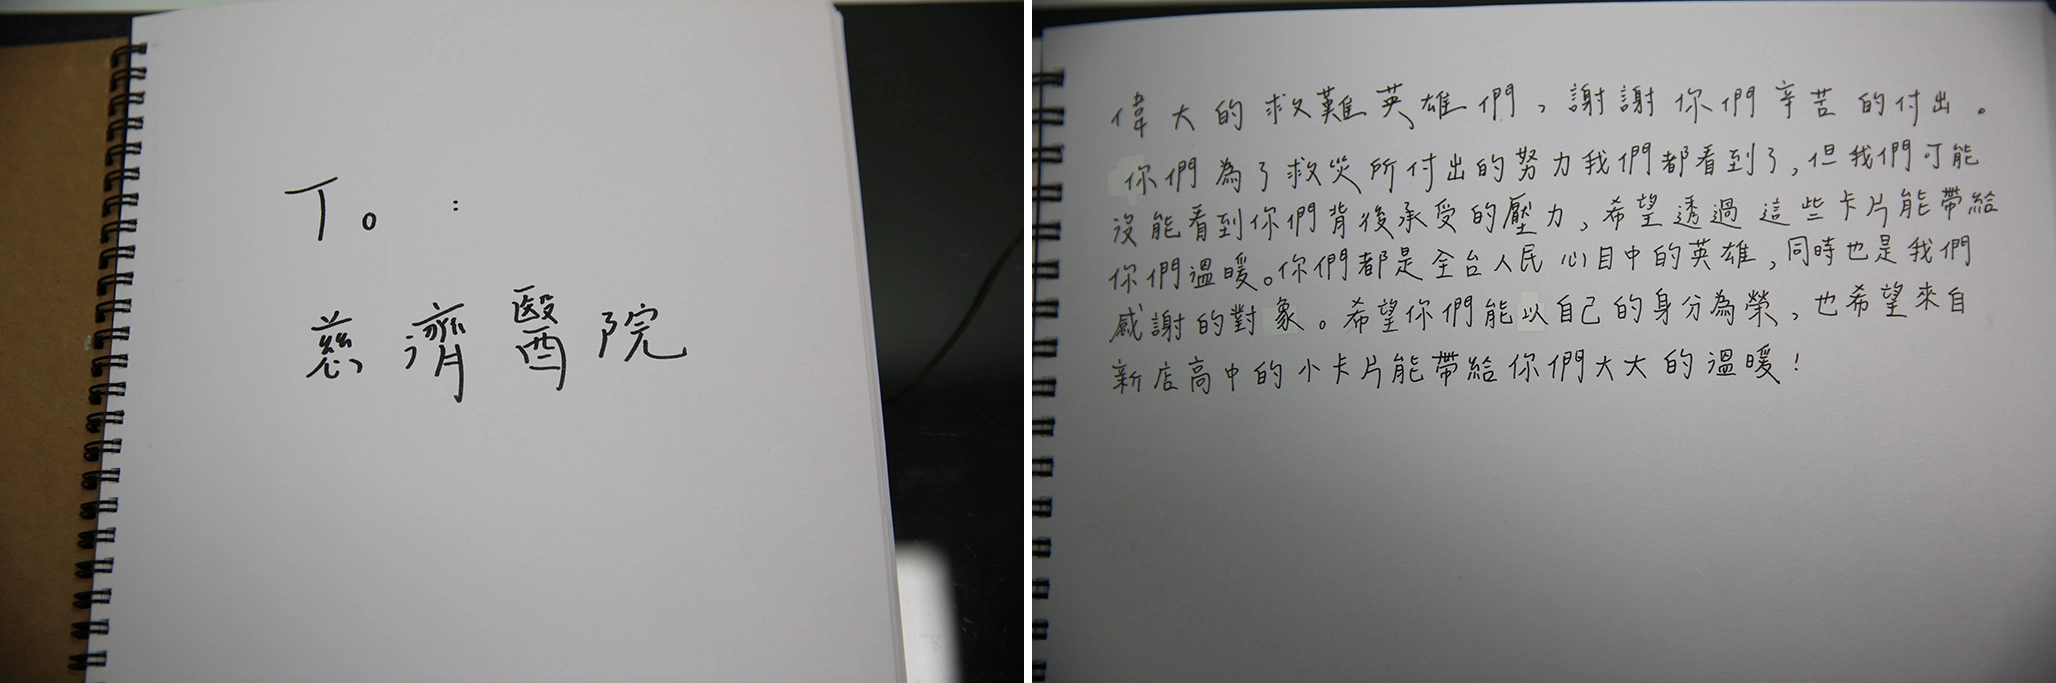 To :
慈濟醫院
偉大的救難英雄們，謝謝你們辛苦的付出。
你們為了救災所付出的努力我們都看到了，但我們可能
沒能看到你們背後承受的壓力，希望透過這些卡片能帶給
你們溫暖。你們都是全台人民心目中的英雄，同時也是我們
感謝的對象。希望你們能以自己的身分為榮，也希望來自
新店高中的小卡片能帶給你們大大的溫暖！